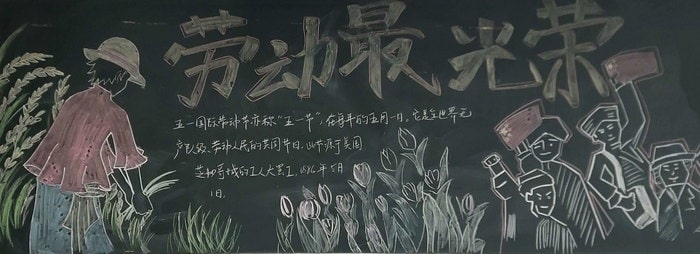 劳动最光荣
五一国际劳动节亦称"五一节",在每年的五月一日。它是全世界无
产阶级、劳动人民的共同节日。此节源于美国
芝加哥城的工人大罢工,1886年5月
1日,